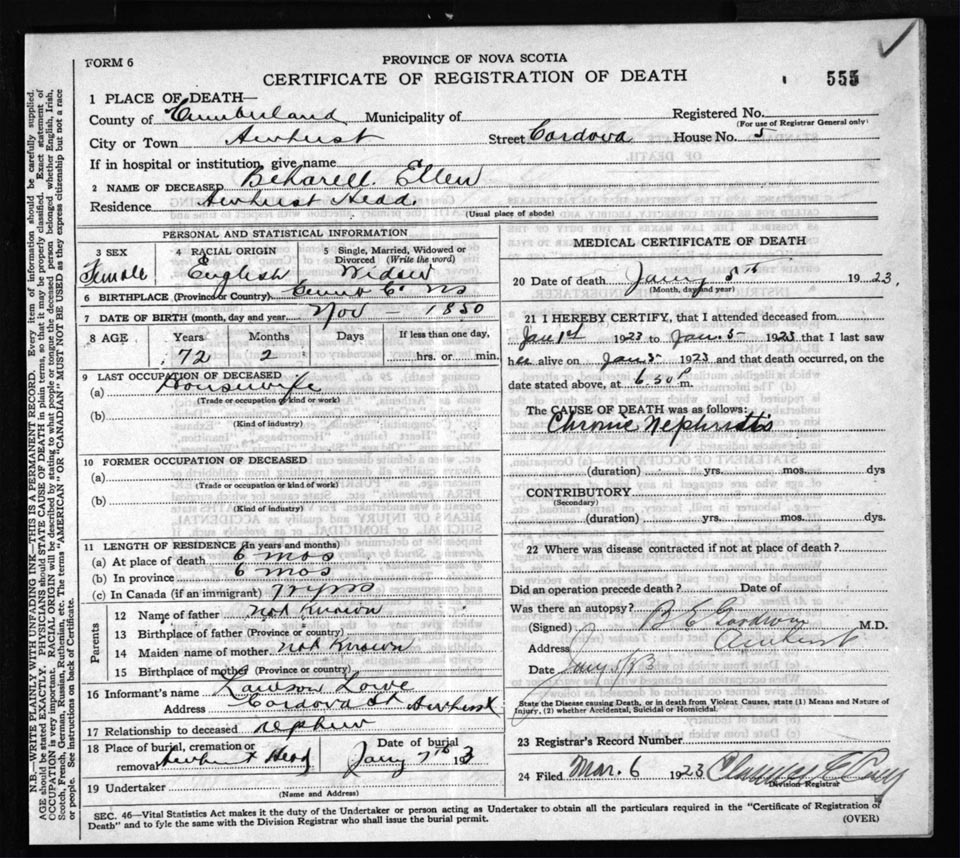 FORM 6
PROVINCE OF NOVA SCOTIA
CERTIFICATE OF REGISTRATION OF DEATH
555
1 PLACE OF DEATH—
County of Cumberland Municipality of
Registered No.
(For use of Registrar General only)
City or Town Amherst Street Cordova House No. 5
If in hospital or institution, give name
2 NAME OF DECEASED Beharell. Ellen
Residence Amherst Head.
(Usual place of abode)
PERSONAL AND STATISTICAL INFORMATION
3 SEX
Female
4 RACIAL ORIGIN
English
5 Single, Married, Widowed or Divorced (Write the word)
Widow
6 BIRTHPLACE (Province or Country) Co NS
7 DATE OF BIRTH (month, day and year) Nov — 1850
8 AGE Years Months If less than one day,
72 2 hrs. or min.
9 LAST OCCUPATION OF DECEASED
(a) Housewife
(Trade or occupation or kind or work)
(b)
(Kind of industry)
10 FORMER OCCUPATION OF DECEASED
(a)
(Trade or occupation or kind or work)
(b)
(Kind of industry)
11 LENGTH OF RESIDENCE (In years and months)
(a) At place of death 6 mos
(b) In province 6 mos
(c) In Canada (if an immigrant)
Parents
12 Name of father not known
13 Birthplace of father (Province or country)
14 Maiden name of mother not known
15 Birthplace of mother (Province or country)
16 Informant's name Lawson Lowe
Address Cordova St Amherst
17 Relationship to deceased nephew
18 Place of burial, cremation or removal Amherst Head
Date of burial
Jany 7th 1923
19 Undertaker
(Name and Address)
MEDICAL CERTIFICATE OF DEATH
20 Date of death Jany 5th 1923.
(Month, day and year)
21 I HEREBY CERTIFY, that I attended deceased from
Jan 1st 1923 to Jan. 5- 1923 that I last saw
her alive on Jan 5- 1923 and that death occurred, on the
date stated above, at 6.30 P m.
The CAUSE OF DEATH was as follows:
Chronic Nephritis
(duration) yrs. mos. dys
CONTRIBUTORY
(Secondary)
(duration) yrs. mos. dys.
22 Where was disease contracted if not at place of death?
Did an operation precede death? Date of
Was there an autopsy?
(Signed) M.D.
Address Amherst
Date Jany 5/23
State the Disease causing Death, or in death from Violent Causes, state (1) Means and Nature of Injury, (2) whether Accidental, Suicidal or Homicidal.
23 Registrar's Record Number
24 Filed Mar. 6 1923
Division Registrar
SEC. 46—Vital Statistics Act makes it the duty of the Undertaker or person acting as Undertaker to obtain all the particulars required in the "Certificate of Registration of
Death" and to fyle the same with the Division Registrar who shall issue the burial permit.
(OVER)
N.B.—WRITE PLAINLY WITH UNFADING INK—THIS IS A PERMANENT RECORD. Every item of information should be carefully supplied.
AGE should be stated EXACTLY. PHYSICIANS should STATE CAUSE OF DEATH in plain terms, so that it may be properly classified. Exact statement of
OCCUPATION is very important. RACIAL ORIGIN will be described by stating to what people or tongue the deceased person belonged whether English, Irish,
Scotch, French, German, Russian, Ruthenian, etc. The terms "AMERICAN" OR "CANADIAN" MUST NOT BE USED as they express citizenship but not a race
or people. See instructions on back of Certificate.